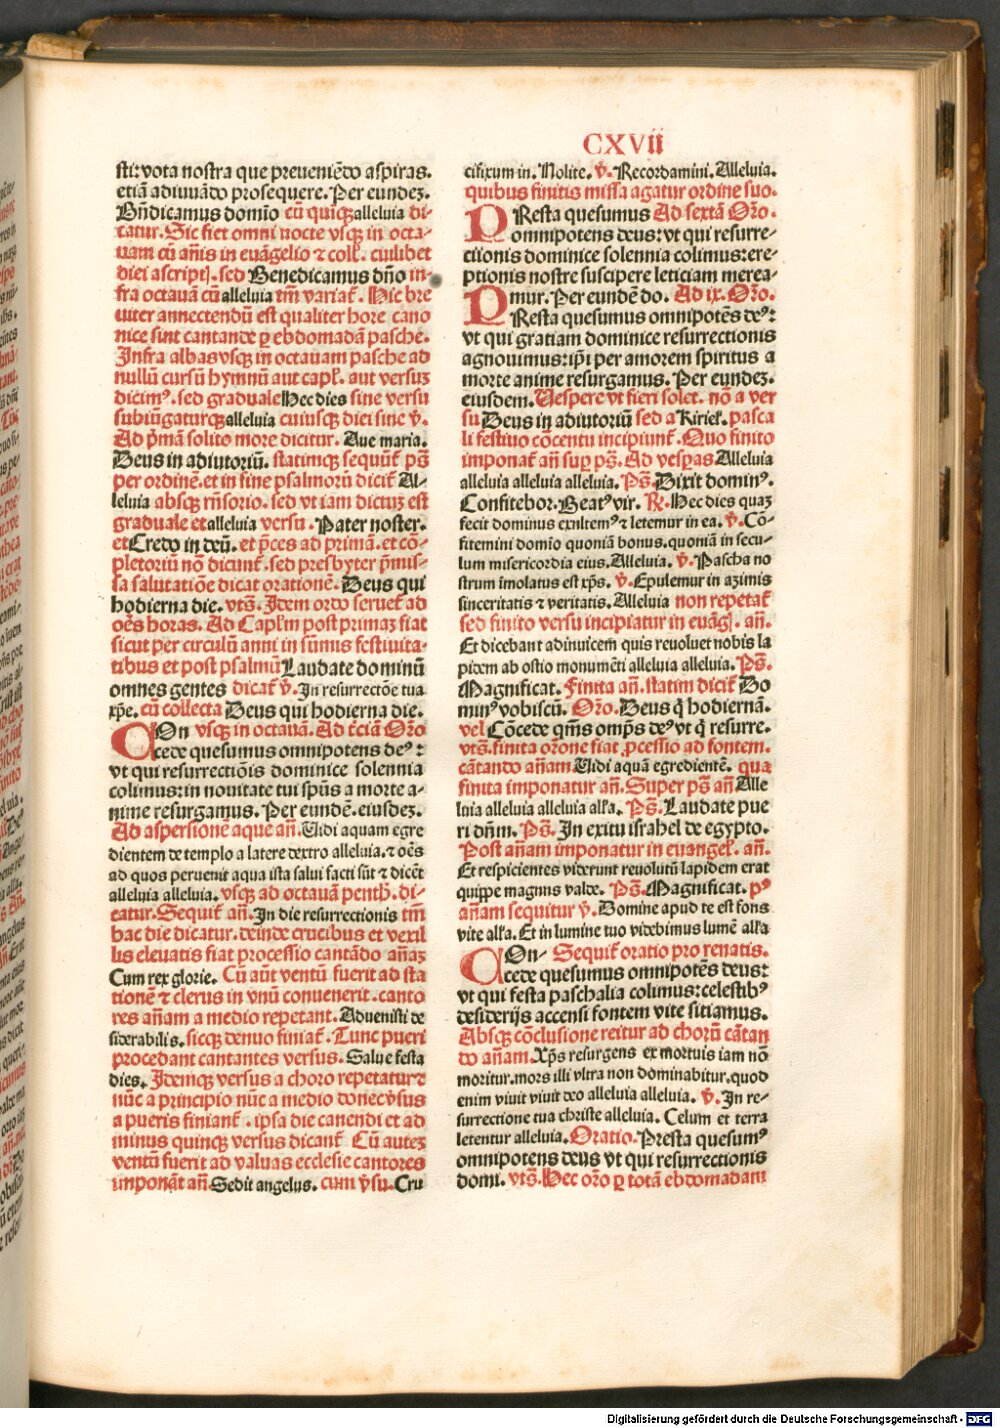 CXVii
sti: vota nostra que preueniẽdo aspiras.
etiã adiuuãdo prosequere. Per eundeʒ.
Bñdicamus domĩo cũ quiqꝫ alleluia di-
catur. Sic fiet omni nocte vsqꝫ in octa-
uam cũ añis in euãgelio ⁊ coll. cuilibet
diei ascriptꝭ. sed Benedicamus dño in-
fra octauã cũ alleluia tm̃ variat̃. Hic bre
uiter annectendũ est qualiter hore cano
nice sint cantande ꝑ ebdomadã pasche.
Infra albas vsqꝫ in octauam pasche ad
nullũ cursũ hymnũ aut capl̃. aut versuʒ
dicimꝰ. sed graduale Hec dies sine versu
subiũgaturqꝫ alleluia cuiusqꝫ diei sine v̾.
Ad p̃mã solito more dicitur. Aue maria.
Deus in adiutoriũ. statimqꝫ sequũt̃ ps̃
per ordinẽ. et in fine psalmorũ dicit̃ Al-
leluia absqꝫ rñsorio. sed vt iam dictuʒ est
graduale et alleluia versu. Pater noster.
et Credo in deũ. et p̃ces ad primã. et cõ-
pletoriũ nõ dicunt̃. sed presbyter p̃mis-
sa salutatiõe dicat orationẽ. Deus qui
hodierna die. vts̃. Idem ordo seruet̃ ad
oẽs horas. Ad Caplm̃ post primaʒ fiat
sicut per circulũ anni in sũmis festiuita-
tibus et post psalmũ Laudate dominũ
omnes gentes dicat̃ v̾. In resurrectõe tua
xp̃e. cũ collecta Deus qui hodierna die.
COn vsqꝫ in octauã. Ad tc̃iã Orõ
cede quesumus omnipotens deꝰ:
vt qui resurrectiõis dominice solennia
colimus: in nouitate tui spũs a morte a-
nime resurgamus. Per eundẽ. eiusdeʒ.
Ad aspersionẽ aque añ. Uidi aquam egre
dientem de templo a latere dextro alleluia. ⁊ oẽs
ad quos peruenit aqua ista salui facti sũt ⁊ dicẽt
alleluia alleluia. vsqꝫ ad octauã penth̃. di-
catur. Sequit̃ añ. In die resurrectionis tm̃
hac die dicatur. deinde crucibus et vexil
lis eleuatis fiat processio cantãdo añaʒ
Cum rex glorie. Cũ aũt ventũ fuerit ad sta
tionẽ ⁊ clerus in vnũ conuenerit. canto
res añam a medio repetant. Aduenisti de
siderabilis. sicqꝫ denuo finiat̃. Tunc pueri
procedant cantantes versus. Salue festa
dies. Idemqꝫ versus a choro repetatur ⁊
nũc a principio nũc a medio donec ṽsus
a pueris finiant̃. ipsa die canendi et ad
minus quinqꝫ versus dicant̃ Cũ auteʒ
ventũ fuerit ad valuas ecclesie cantores
imponãt añ Sedit angelus. cum ṽsu. Cru
cifixum in. Nolite. v̾. Recordamini. Alleluia.
quibus finitis missa agatur ordine suo.
PResta quesumus Ad sextã Orõ.
omnipotens deus: vt qui resurre-
ctionis dominice solennia colimus: ere-
ptionis nostre suscipere leticiam merea-
mur. Per eundẽ do. Ad ix. Orõ.
PResta quesumus omnipotẽs deꝰ:
vt qui gratiam dominice resurrectionis
agnouimus: ip̃i per amorem spiritus a
morte anime resurgamus. Per eundeʒ.
eiusdem. Uespere vt fieri solet. nõ a ver
su Deus in adiutoriũ sed a Kiriel̃. pasca
li festiuo cõcentu incipiunt̃. Quo finito
imponat̃ añ suꝑ ps̃. Ad vesp̃as Alleluia
alleluia alleluia alleluia. Ps̃. Dixit dominꝰ.
Confitebor. Beatꝰ vir. R̃. Hec dies quaʒ
fecit dominus exultemꝰ ⁊ letemur in ea. v̾. Cõ-
fitemini domĩo quoniã bonus. quoniã in secu-
lum misericordia eius. Alleluia. v̾. Pascha no
strum ĩmolatus est xp̃s. v̾. Epulemur in azimis
sinceritatis ⁊ veritatis. Alleluia non repetat̃
sed finito versu incipiatur in euãgꝭ. añ.
Et dicebant adinuicem quis reuoluet nobis la
pidem ab ostio monumẽti alleluia alleluia. Ps̃.
Magnificat. Finita añ. statim dicit̃ Do
minꝰ vobiscũ. Orõ. Deus q̃ hodiernã.
vel Cõcede qm̃s omp̃s deꝰ vt q̃ resurre.
vts̃. finita orõne fiat ꝓcessio ad fontem.
cãtando añam Uidi aquã egredientẽ. qua
finita imponatur añ. Super ps̃ añ Alle
luia alleluia alleluia all̃a. Ps̃. Laudate pue
ri dñm. Ps̃. In exitu israhel de egypto.
Post añam imponatur in euangel̃. añ.
Et respicientes viderunt reuolutũ lapidem erat
quippe magnus valde. Ps̃. Magnificat. pꝰ
añam sequitur v̾. Domine apud te est fons
vite all̃a. Et in lumine tuo videbimus lumẽ all̃a
COn- Sequit̃ oratio pro renatis.
cede quesumus omnipotẽs deus:
vt qui festa paschalia colimus: celestibꝰ
desiderijs accensi fontem vite sitiamus.
Absqꝫ cõclusione reitur ad chorũ cãtan
do añam. Xp̃s resurgens ex mortuis iam nõ
moritur. mors illi vltra non dominabitur. quod
enim viuit viuit deo alleluia alleluia. v̾. In re-
surrectione tua christe alleluia. Celum et terra
letentur alleluia. Oratio. Presta quesumꝰ
omnipotens deus vt qui resurrectionis
domi. vts̃. Hec orõ ꝑ totã ebdomadam
Digitalisierung gefördert durch die Deutsche Forschungsgemeinschaft - DFG